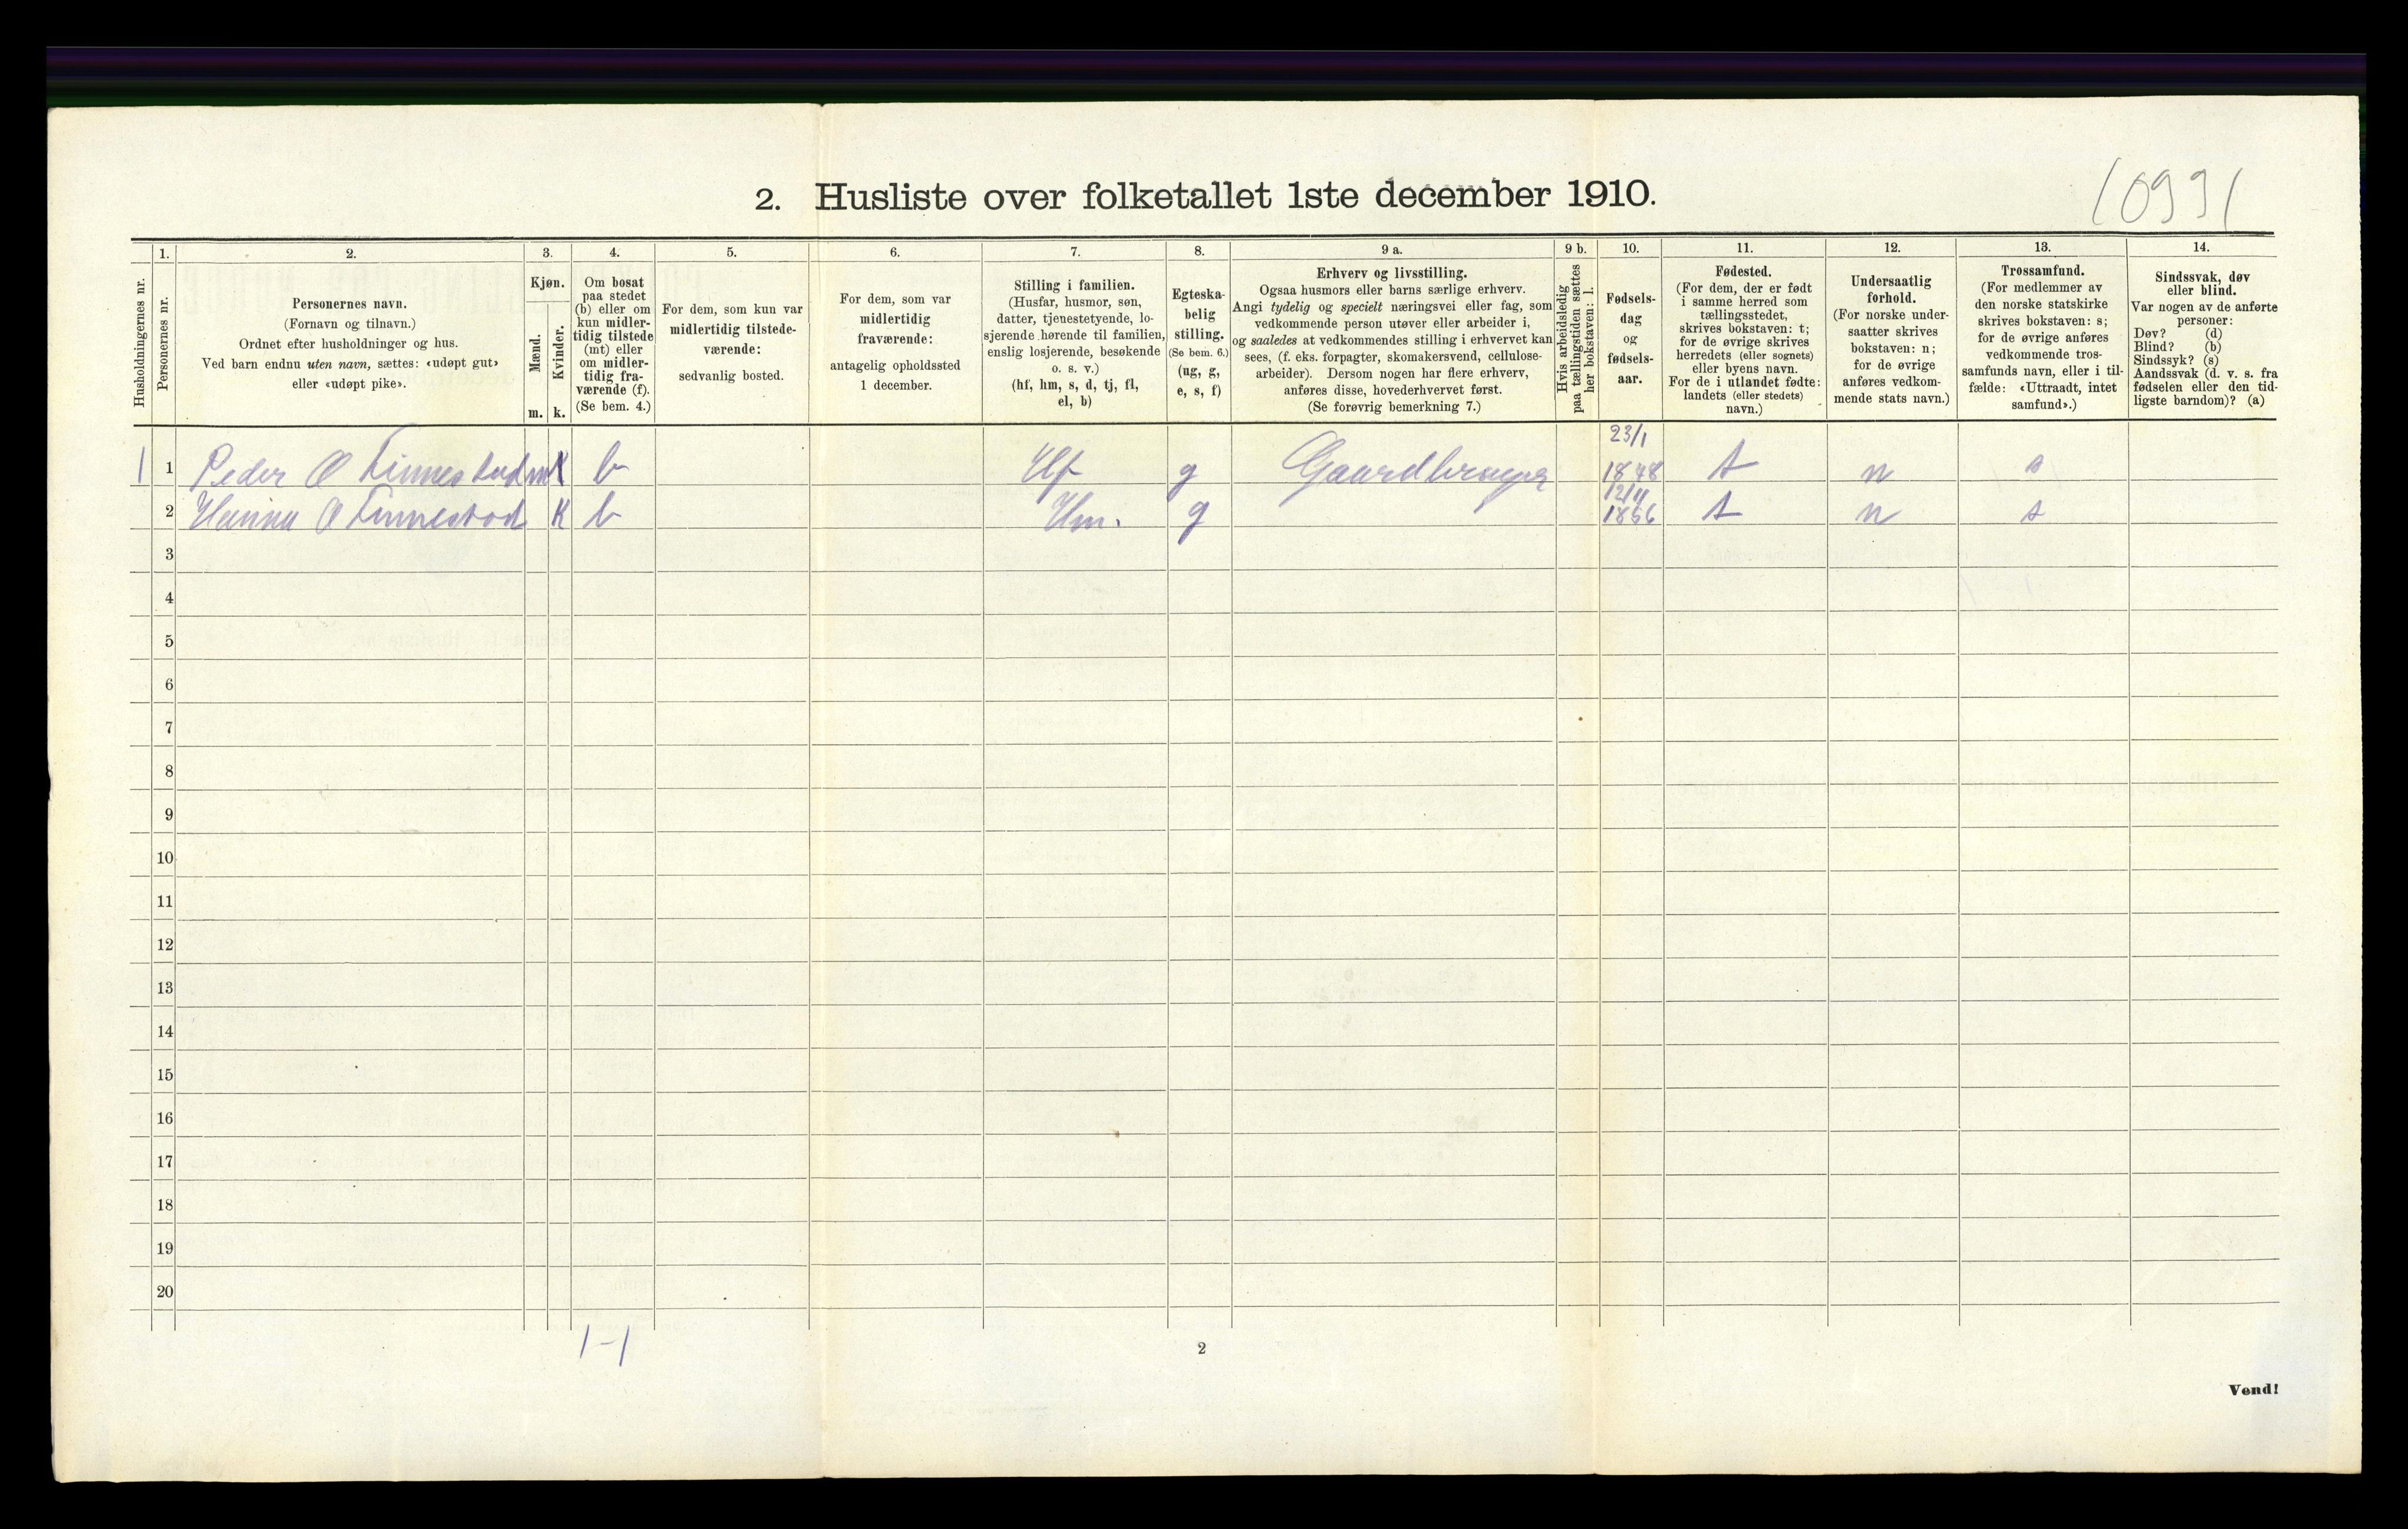 2. Husliste over folketallet 1ste december 1910.
1. 2. 3. 4. 5. 6. 7. 8. 9 a. 9 b. 10. 11. 12. 13. 14.
Husholdningernes nr.
Personernes nr.
Personernes navn.
(Fornavn og tilnavn.)
Ordnet efter husholdninger og hus.
Ved barn endnu uten navn, sættes: «udøpt gut»
eller «udøpt pike».
Kjøn.
Mænd.
Kvinder.
m. k.
Om bosat
paa stedet
(b) eller om
kun midler-
tidig tilstede
(mt) eller
om midler-
tidig fra-
værende (f).
(Se bem. 4.)
For dem, som kun var
midlertidig tilstede-
værende:
sedvanlig bosted.
For dem, som var
midlertidig
fraværende:
antagelig opholdssted
1 december.
Stilling i familien.
(Husfar, husmor, søn,
datter, tjenestetyende, lo-
sjerende hørende til familien,
enslig losjerende, besøkende
o. s. v.)
(hf, hm, s, d, tj, fl,
el, b)
Egteska-
belig
stilling.
(Se bem. 6.)
(ug, g,
e, s, f)
Erhverv og livsstilling.
Ogsaa husmors eller barns særlige erhverv.
Angi tydelig og specielt næringsvei eller fag, som
vedkommende person utøver eller arbeider i,
og saaledes at vedkommendes stilling i erhvervet kan
sees, (f. eks. forpagter, skomakersvend, cellulose-
arbeider). Dersom nogen har flere erhverv,
anføres disse, hovederhvervet først.
(Se forøvrig bemerkning 7.)
Hvis arbeidsledig
paa tællingstiden sættes
her bokstaven: l.
Fødsels-
dag
og
fødsels-
aar.
Fødested.
(For dem, der er født
i samme herred som
tællingsstedet,
skrives bokstaven: t;
for de øvrige skrives
herredets (eller sognets)
eller byens navn.
For de i utlandet fødte:
landets (eller stedets)
navn.)
Undersaatlig
forhold.
(For norske under-
saatter skrives
bokstaven: n;
for de øvrige
anføres vedkom-
mende stats navn.)
Trossamfund.
(For medlemmer av
den norske statskirke
skrives bokstaven: s;
for de øvrige anføres
vedkommende tros-
samfunds navn, eller i til-
fælde: «Uttraadt, intet
samfund».)
Sindssvak, døv
eller blind.
Var nogen av de anførte
personer:
Døv? (d)
Blind? (b)
Sindssyk? (s)
Aandssvak (d. v. s. fra
fødselen eller den tid-
ligste barndom)? (a)
1 1 Peder O Finnestad m b Hf g Gaardbruger 23/1 1848 t n s
2 Hanna O Finnestad K b Hm. g 1856 t n s
3
4
5
6
7
8
9
10
11
12
13
14
15
16
17
18
19
20
1-1
2
Vend!